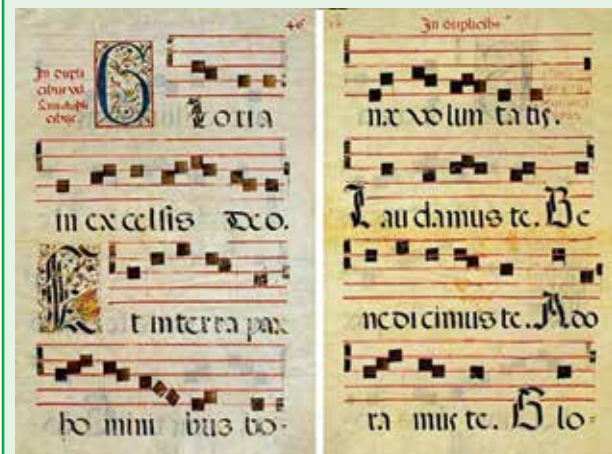 46
In dupli
cibus vel
cibus.
Gloria
in ex celsis Deo.
Et in terra pax
ho mini bus bo-
In duplicibus
næ volun ta tis.
Lau damus te. Be
ne di cimus te. Ado
ra mus te. Glo-